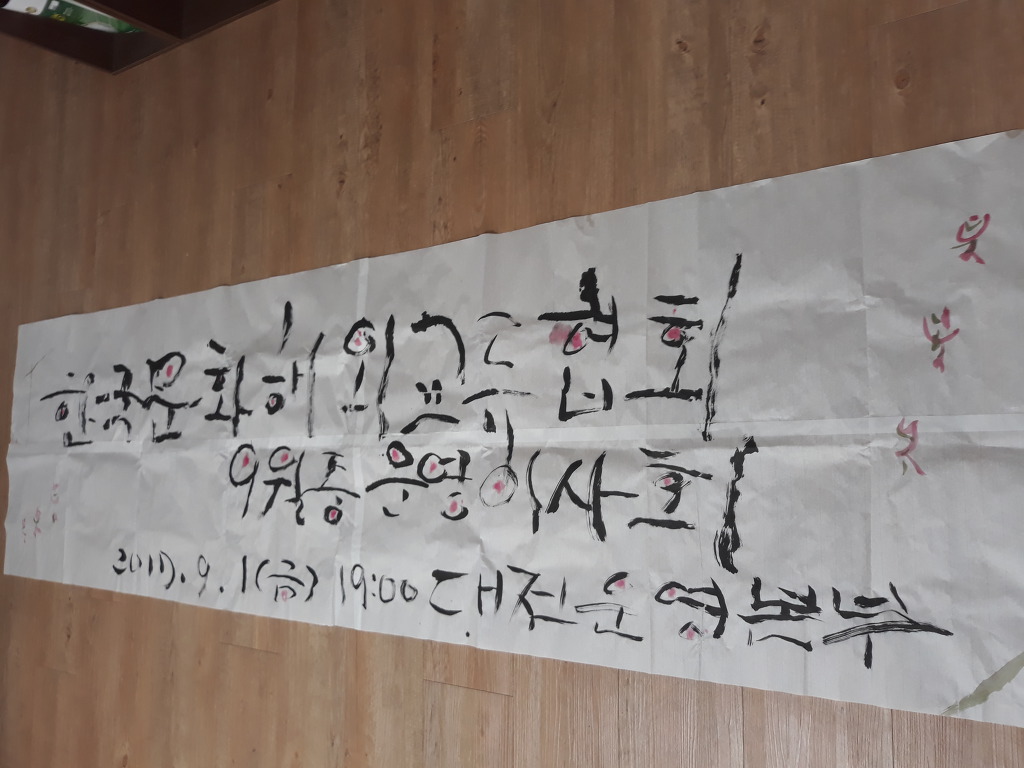 한국문화해외교류협회
9월중운영이사회
2017. 9. 1(금) 19:00 대전운영본부